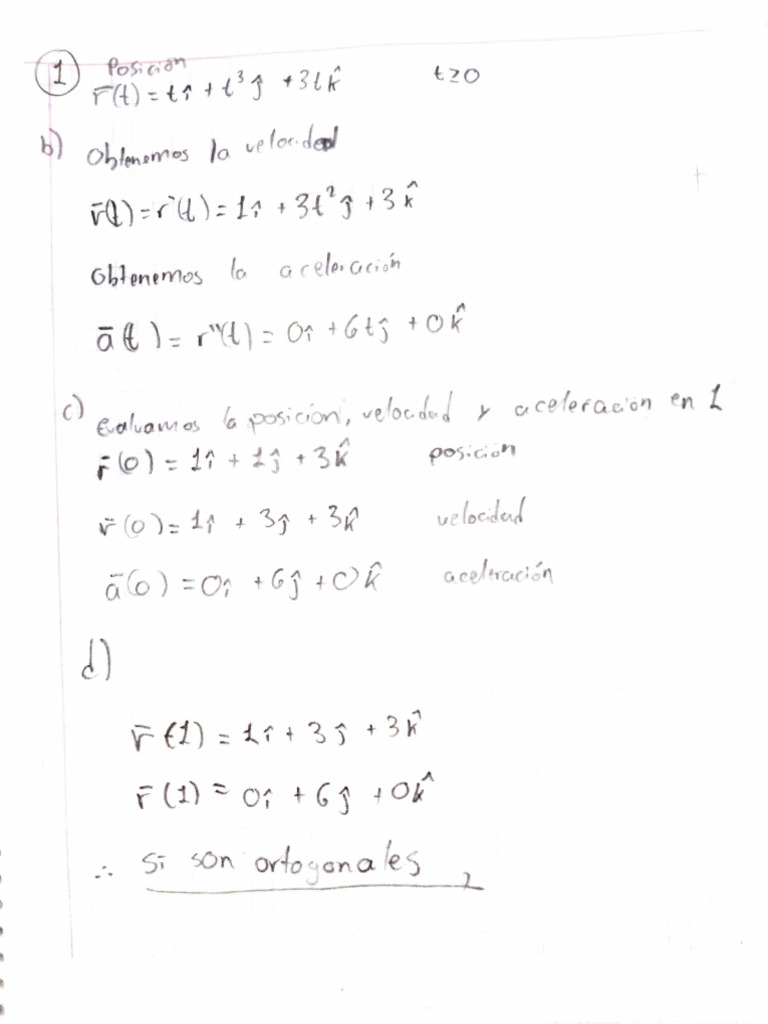 1 Posición
r̄(t) = tî + t³ĵ + 3tk̂ t≥0
b) Obtenemos la velocidad
r̄(t) = r'(t) = 1î + 3t²ĵ + 3k̂
Obtenemos la aceleración
ā(t) = r''(t) = 0î + 6tĵ + 0k̂
c) Evaluamos la posición, velocidad y aceleración en 1
r̄(0) = 1î + 1ĵ + 3k̂ posición
v̄(0) = 1î + 3ĵ + 3k̂ velocidad
ā(0) = 0î + 6ĵ + 0k̂ aceleración
d)
r̄(1) = 1î + 3ĵ + 3k̂
r̄(1) = 0î + 6ĵ + 0k̂
∴ Si son ortogonales